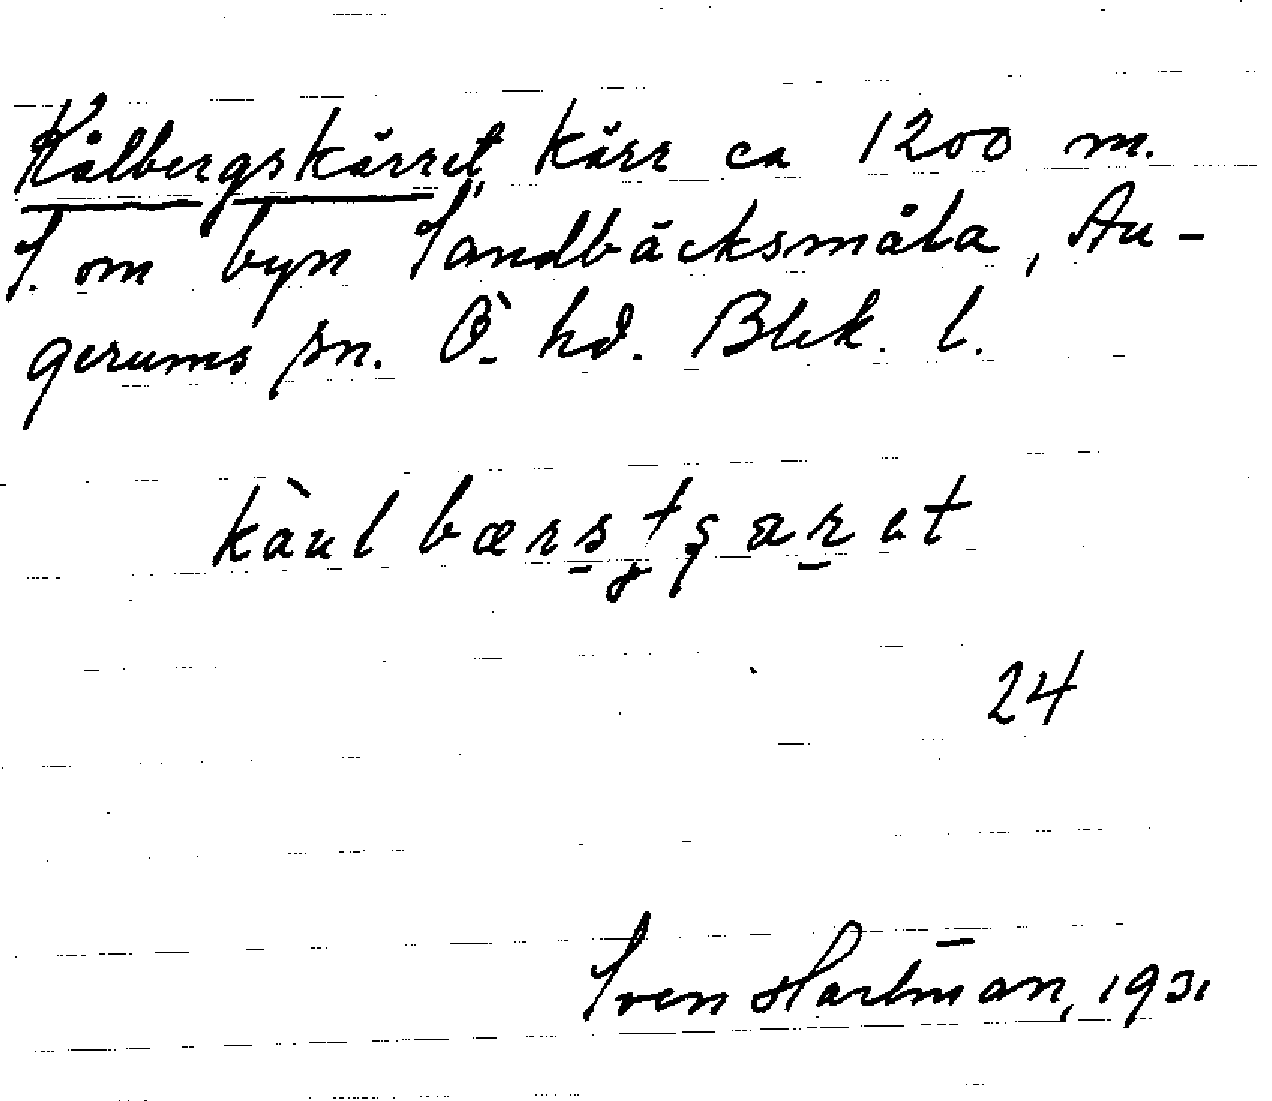 Kålbergskärret, Kärr ca 1200 m.
S. om byn Sandbäcksmåla, Au-
gerums sn. Ö. hd. Blek. l.
kàulbærstʂæret
24
Sven Hartman, 1931